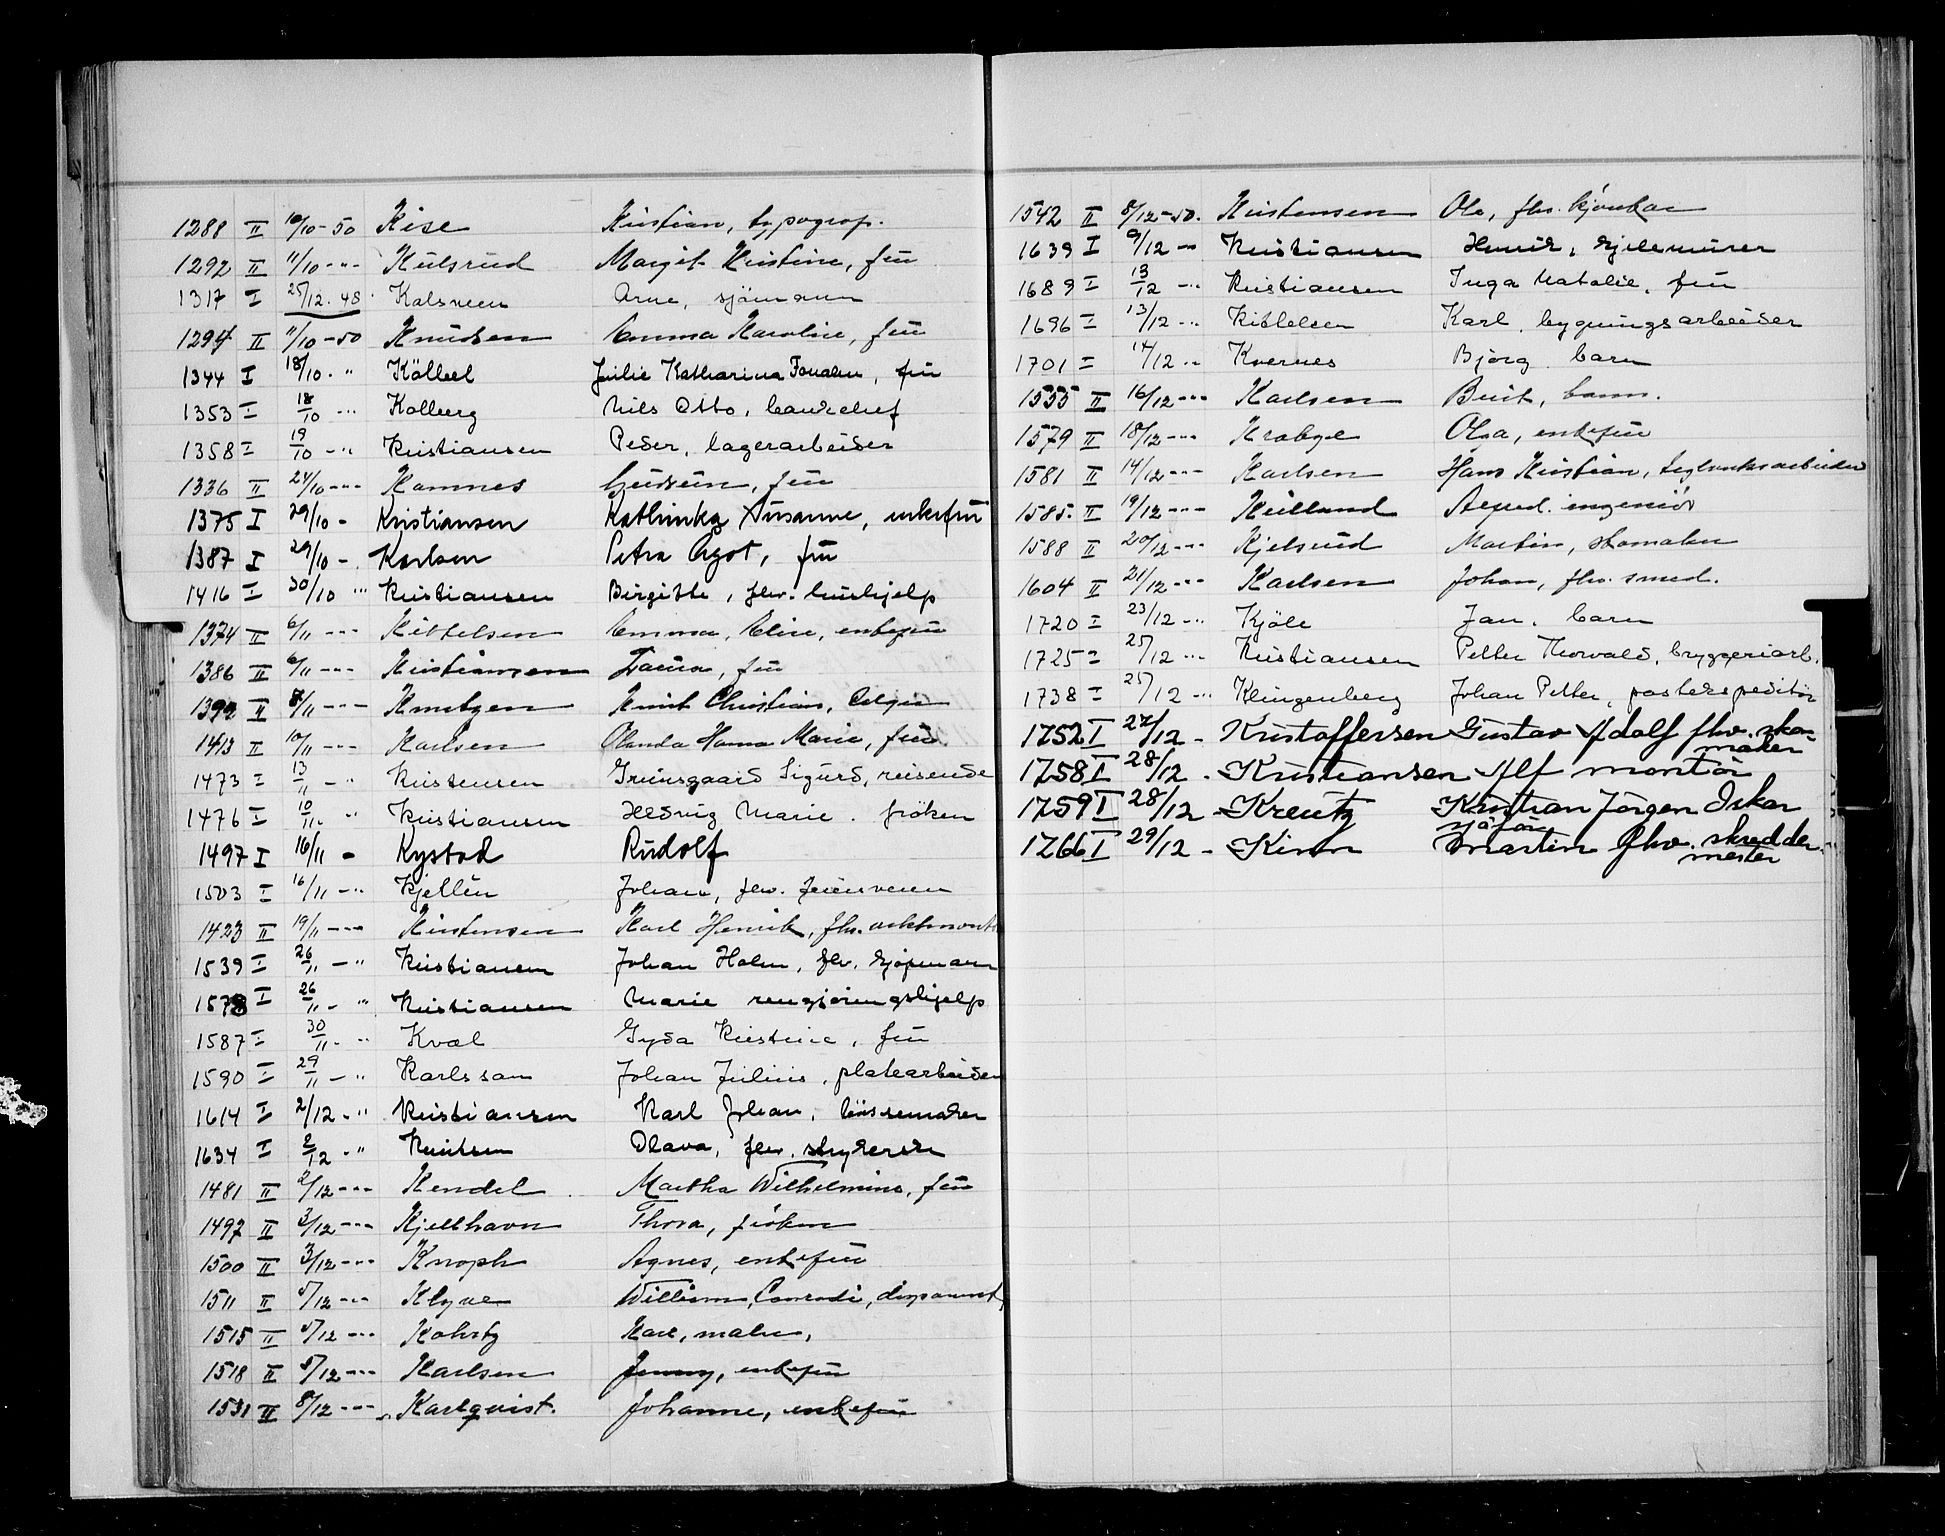 1288 II 10/10-50 Kise Kristian, typograf.
1292 II 11/10 - -- Kulsrud Margit Kristine, fru
1317 I 25/12. 48. Kalsveen Arne, sjömann
1294 II 11/10-50 Knudsen Emma Karoline, fru
1344 I 18/10. " Kölbel Julie Katharina, fru
1353 I 18/10 - " Kolberg Nils Otto, bankchef
1358 I 19/10 - " Kristiansen Peder, lagerarbeider
1336 II 24/10 --- Kamnes Gudrun, fru
1375 I 29/10 - Kristiansen Kathinka Susanne, enkefru
1387 I 29/10 - Karlsen Petra Agot, fru
1416 I 30/10 " Kristiansen Birgitte, fhv. hushjelp
1374 II 6/11 --- Kittelsen Emma, Elise, enkefru
1386 II 6/11 --- Kristiansen Laura, fru
1392 II 8/11 --- Knutzen Knut Christian,
1413 II 10/11 --- Karlsen Olanda Hanna Marie, fru
1473 I 13/11 - " Kristensen Grünsgaard Sigurd, reisende
1476 I 10/11. " Kristiansen Hedvig Marie. fröken
1497 I 16/11 - Kystad Rudolf
1503 I 16/11 - " Kjellén Johan, fhv.
1423 II 19/11 --- Kristensen Karl Henrik, fhv.
1539 I 26/11 - " Kristiansen Johan Holm, fhv. kjøpmann
1578 I 26/11 - " Kristiansen Marie rengjøringshjelp
1587 I 30/11 - " Kval Gyda Kristine, fru
1590 I 29/11 - " Karlsson Johan Julius, platearbeider
1614 I 2/12 - " Kristiansen Karl Johan, børsemaker
1634 I 2/12 - " Knutsen Olava, fhv. strykerske
1481 II 2/12 --- Kendel Martha Wilhelmine, fru
1497 II 3/12 --- Kjellhavn Thora, frøken
1500 II 3/12 --- Knoph Agnes, enkefru
1511 II 5/12 --- Klyve William, Conradi, disponent,
1515 II 5/12 --- Kohrtz Karl, maler,
1518 II 5/12 --- Karlsen Jenny, enkefru
1531 II 8/12 --- Karlqvist. Johanne, enkefru
1542 II 8/12-50. Kristensen Ole, fhv. kjørekar
1639 I 9/12 - Kristiansen Henrik, kjelemurer
1689 I 13/12 - " Kristiansen Inga Natalie, fru
1696 I 13/12 - " Kittelsen Karl, bygningsarbeider
1701 I 14/12 " Kvernes Bjørg. barn
1555 II 16/12 --- Karlsen Berit, barn.
1579 II 18/12 --- Krabye Olga, enkefru
1581 II 14/12 --- Karlsen Hans Kristian, teglverksarbeider
1585. II 19/12 --- Kielland Asped. ingeniør
1588 II 20/12 --- Kjelsrud Martin, skomaker
1604 II 21/12 --- Karlsen Johan, fhv. smed.
1720 I 23/12 - " Kjöle Jan. barn
1725 I 25/12 - " Kristiansen Petter Thorvald, bryggeriarb.
1738 I 25/12 - " Klingenberg Johan Petter, postekspeditør
1752 I 27/12 - Kristoffersen Gustav Adolf fhv. sko-
maker
1758 I 28/12 - Kristiansen Alf montör
1759 I 28/12 - Kreutz Kristian Jörgen Oskar
sjåför
1766 I 29/12 - Kinn Martin fhv. skredder-
mester